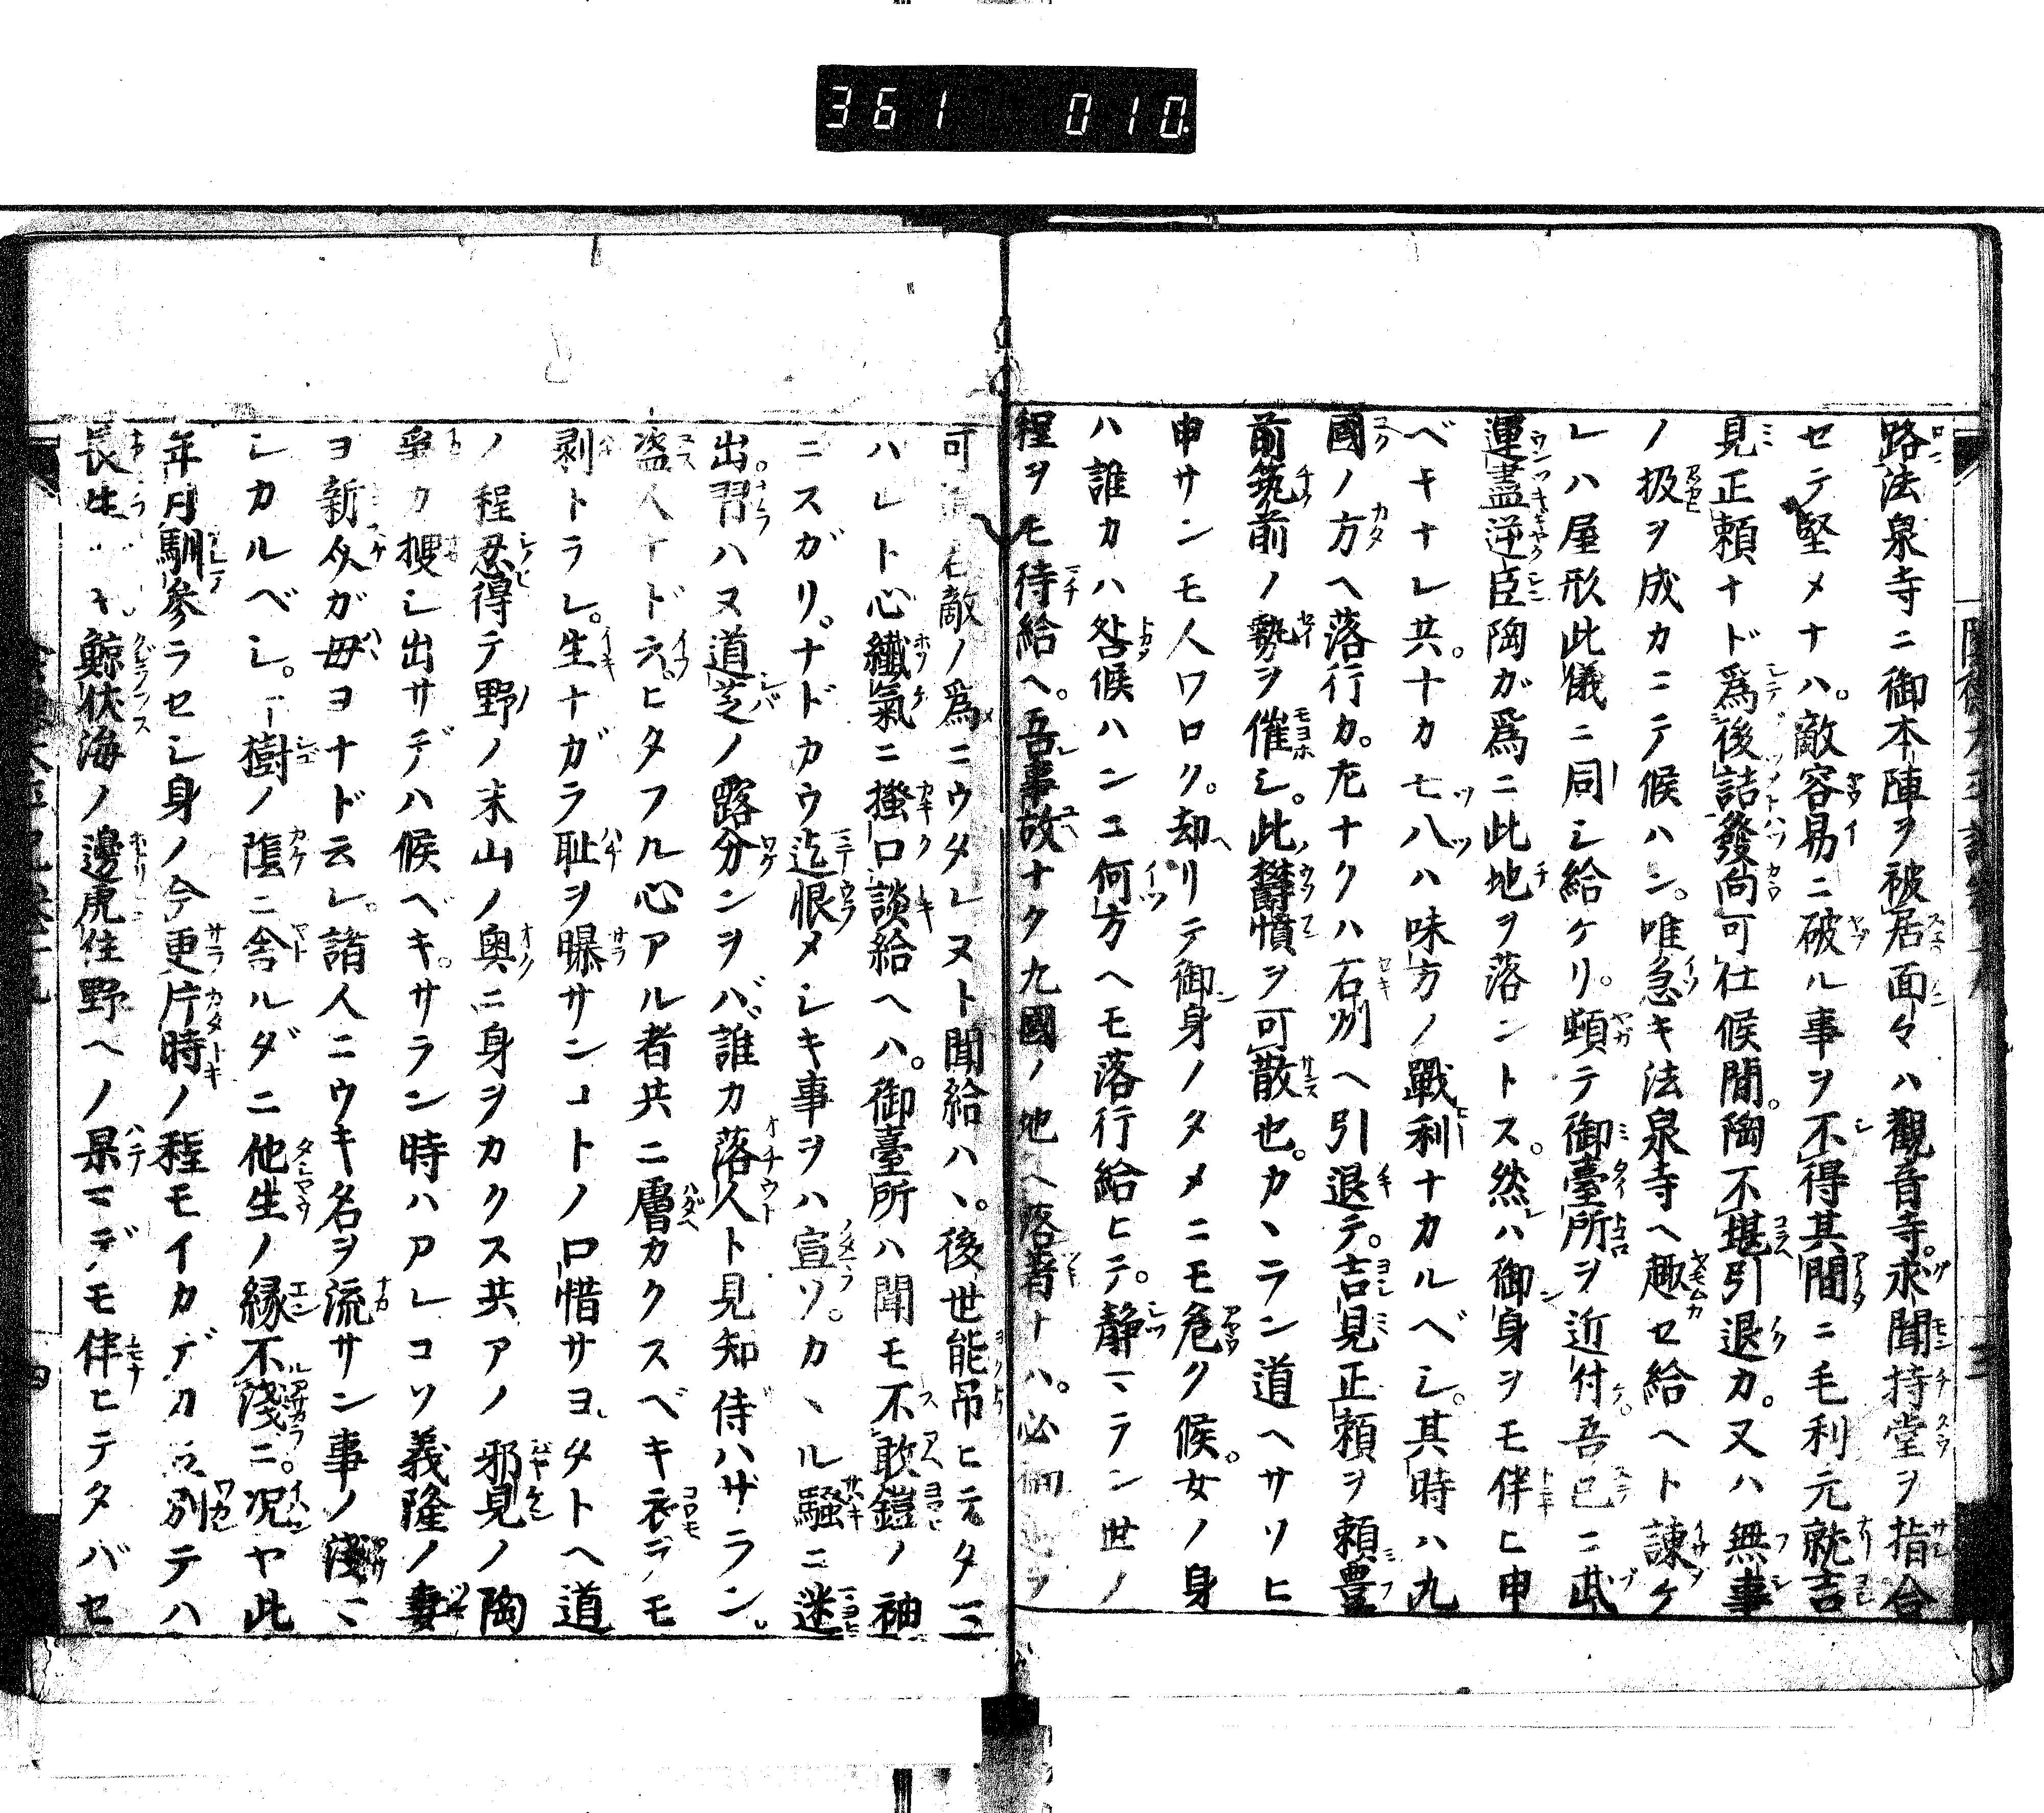 361 010.
路法泉寺ニ御本陣ヲ被居面々ハ觀音寺。求聞持堂ヲ指合
セテ堅メナハ。敵容易ニ破ル事ヲ不得其間ニ毛利元就吉
見正頼ナド爲後詰發向可仕候間。陶不堪引退カ。又ハ無事
ノ扱ヲ成カニテ候ハン。唯急キ法泉寺ヘ趣セ給ヘト諌ケ
レハ屋形此儀ニ同シ給ケリ。頓テ御臺所ヲ近付吾已ニ武
運盡逆臣陶ガ爲ニ此地ヲ落ントス。然ハ御身ヲモ伴ヒ申
ベキナレ共。十カ七八ハ味方ノ戰利ナカルベシ。其時ハ九
國ノ方ヘ落行カ。尤ナクハ石州ヘ引退テ。吉見正頼ヲ頼豊
前筑前ノ勢ヲ催シ。此欝憤ヲ可散也。カヽラン道ヘサソヒ
申サンモ人ワロク。却リテ御身ノタメニモ危ク候。女ノ身
ハ誰カハ咎候ハンユ何方ヘモ落行給ヒテ。静マラン世ノ
程ヲモ待給ヘ。吾事故ナク九國ノ地ヘ落着ナハ。必
可 敵ノ爲ニウタレヌト聞給ハヽ。後世能吊ヒ云タマ
ハレト心纖氣ニ掻口談給ヘハ。御臺所ハ聞モ不敢鎧ノ袖
ニスガリ。ナドカウ迄恨メシキ事ヲハ宣ソ。カヽル騷ニ迷
出習ハヌ道芝ノ露分ンヲバ誰カ落人ト見知侍ハザラン。
盗人ナド云。ヒタフル心アル者共ニ膚カクスベキ衣ヲモ
剥トラレ。生ナガラ耻ヲ曝サンコトノ口惜サヨ。タトヘ道
ノ程忍得テ野ノ末山ノ奥ニ身ヲカクス共アノ邪見ノ陶
争カ捜シ出サデハ候ベキ。サラン時ハアレコソ義隆ノ妻
ヨ新介ガ母ヨナド云レ。諸人ニウキ名ヲ流サン事ノ淺マ
シカルベシ。一樹ノ蔭ニ舎ルダニ他生ノ縁不淺ニ。况ヤ此
年月馴參ラセシ身ノ今更片時ノ程モイカデカ立別テハ
長生 キ。鯨伏海ノ邊虎住野ヘノ果マデモ伴ヒテタバセ
四